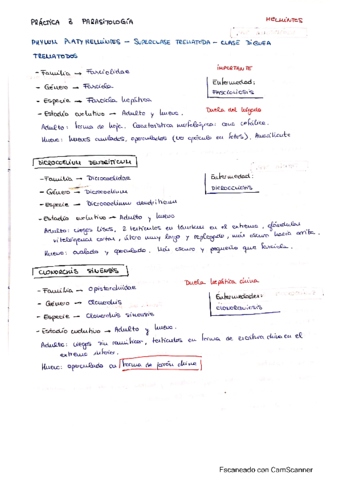 PRÁCTICA 2 PARASITOLOGÍA
HELMINTOS
PHYLUM PLATYHELMINDES - SUPERCLASE TREMATODA - CLASE DIGENEA
TREMATODOS
IMPORTANTE
- Familia → Fasciolidae
Enfermedad:
FASCIOLOSIS
- Género → Fasciola
- Especie → Fasciola hepática
Duela del hígado
- Estadio evolutivo → Adulto y huevo.
Adulto: forma de hoja. Característica morfológica: cono cefálico.
Huevo: huevos ovalados, operculados (no opérculo en fotos). Amarillento
DICROCOELIUM DENDRITICUM
- Familia → Dicrocoelidae
Enfermedad:
DICROCELIOSIS
- Género → Dicrocoelium
- Especie → Dicrocoelium dendriticum
- Estadio evolutivo → Adulto y huevo
Adulto: ciegos lisos, 2 testículos en tándem en el extremo, glándulas
vitelógenas cortas, útero muy largo y replegado, más oscuro hacia arriba.
Huevo: ovalado y operculado. Más oscuro y pequeño que fasciola.
CLONORCHIS SINENSIS
Duela hepática china
- Familia → Opistorchiidae
Enfermedades:
CLONORQUIOSIS
- Género → Clonorchis
- Especie → Clonorchis sinensis
- Estadio evolutivo → Adulto y huevo.
Adulto: ciegos sin ramificar, testículos en forma de escritura china en el
extremo inferior.
Huevo: operculado en forma de jarrón chino
Escaneado con CamScanner